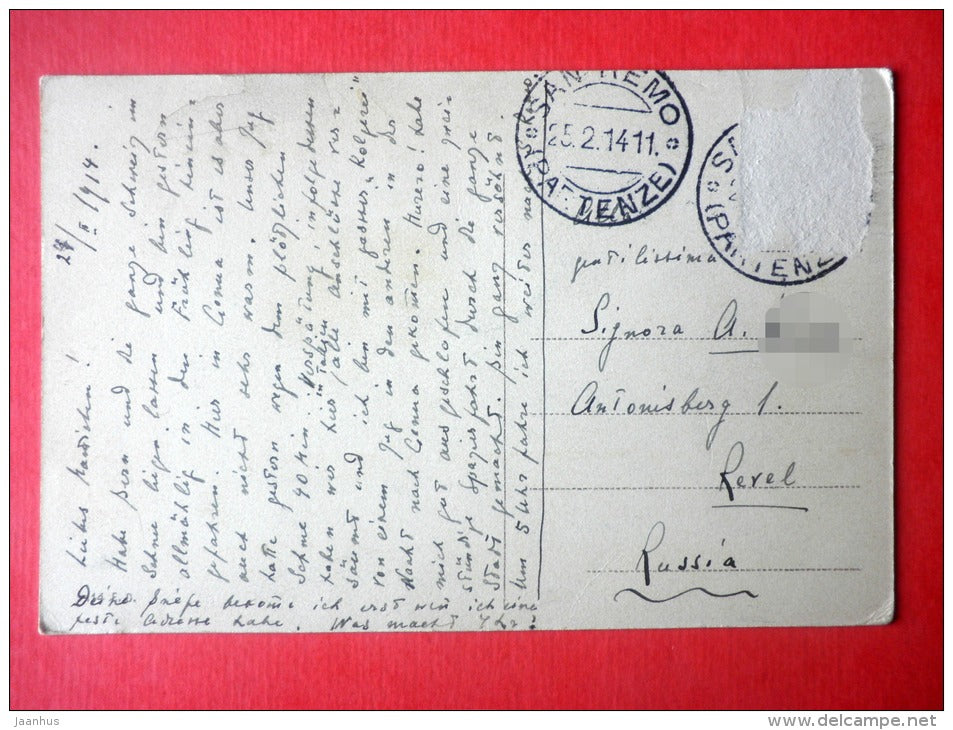 24/II 1914.
Liebes
Habe Bern und die ganze Schweiz im
Schnee liegen lassen und bin gestern
allmählig in den Frühling hinein-
gefahren. Hier in Genua ist es aber
auch nicht sehr warm. Unser Zug
hatte gestern wegen dem plötzlichen
Schnee 40 Min. Verspätung infolgedessen
haben wir hier in Italien alle Anschlüsse ver-
säumt und ich bin mit
von einem Zug in den anderen in der
Nacht nach Genua gekommen. Hurero! habe
mich gut ausgeschlafen und eine zwei
stündige Spazierfahrt durch die ganze
Stadt gemacht. Bin ganz versöhnt.
Um 5 Uhr fahre ich weiter nach
Deine Briefe bekomme ich erst wen ich eine
feste Adresse habe. Was macht Ihr?
SAN REMO
25.2.14 11.
(PARTENZE)
S
(PARTENZE
gentilissima
Signora A.
Antonisberg 1.
Revel
Russia
Jaanhus
www.delcampe.net